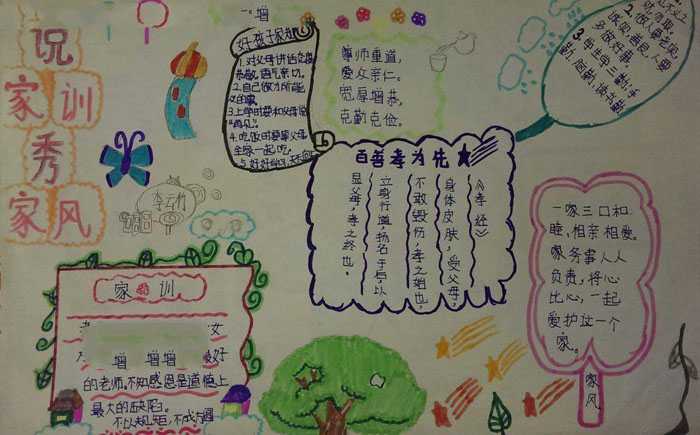 说
家训
秀
家风
增
好孩子家规
1.对父母讲话态度
恭敬,语气亲切。
2.自己做力所能
及的事。
3.上学时要和父母说
"再见"。
4.吃饭时要等父母
全家一起吃,
5.好好学习,
尊师重道,
爱众亲仁。
宽厚增恭,
克勤克俭。
2.做人要老实,
诚实,善良,人要
多做好事。
3.学生学三勤:手
勤,脑勤,读书勤
百善孝为先
《孝经》
身体皮肤,受父母,
不敢毁伤,孝之始也,
立身行道,扬名于后,以
显父母,孝之终也。
李云竹
家训
女
增 增增 最好
的老师,不知感恩是道德上
最大的缺陷。
不以规矩,不成方圆
一家三口和
睦,相亲相爱。
家务事人人
负责,将心
比心,一起
爱护这一个
家。
家风